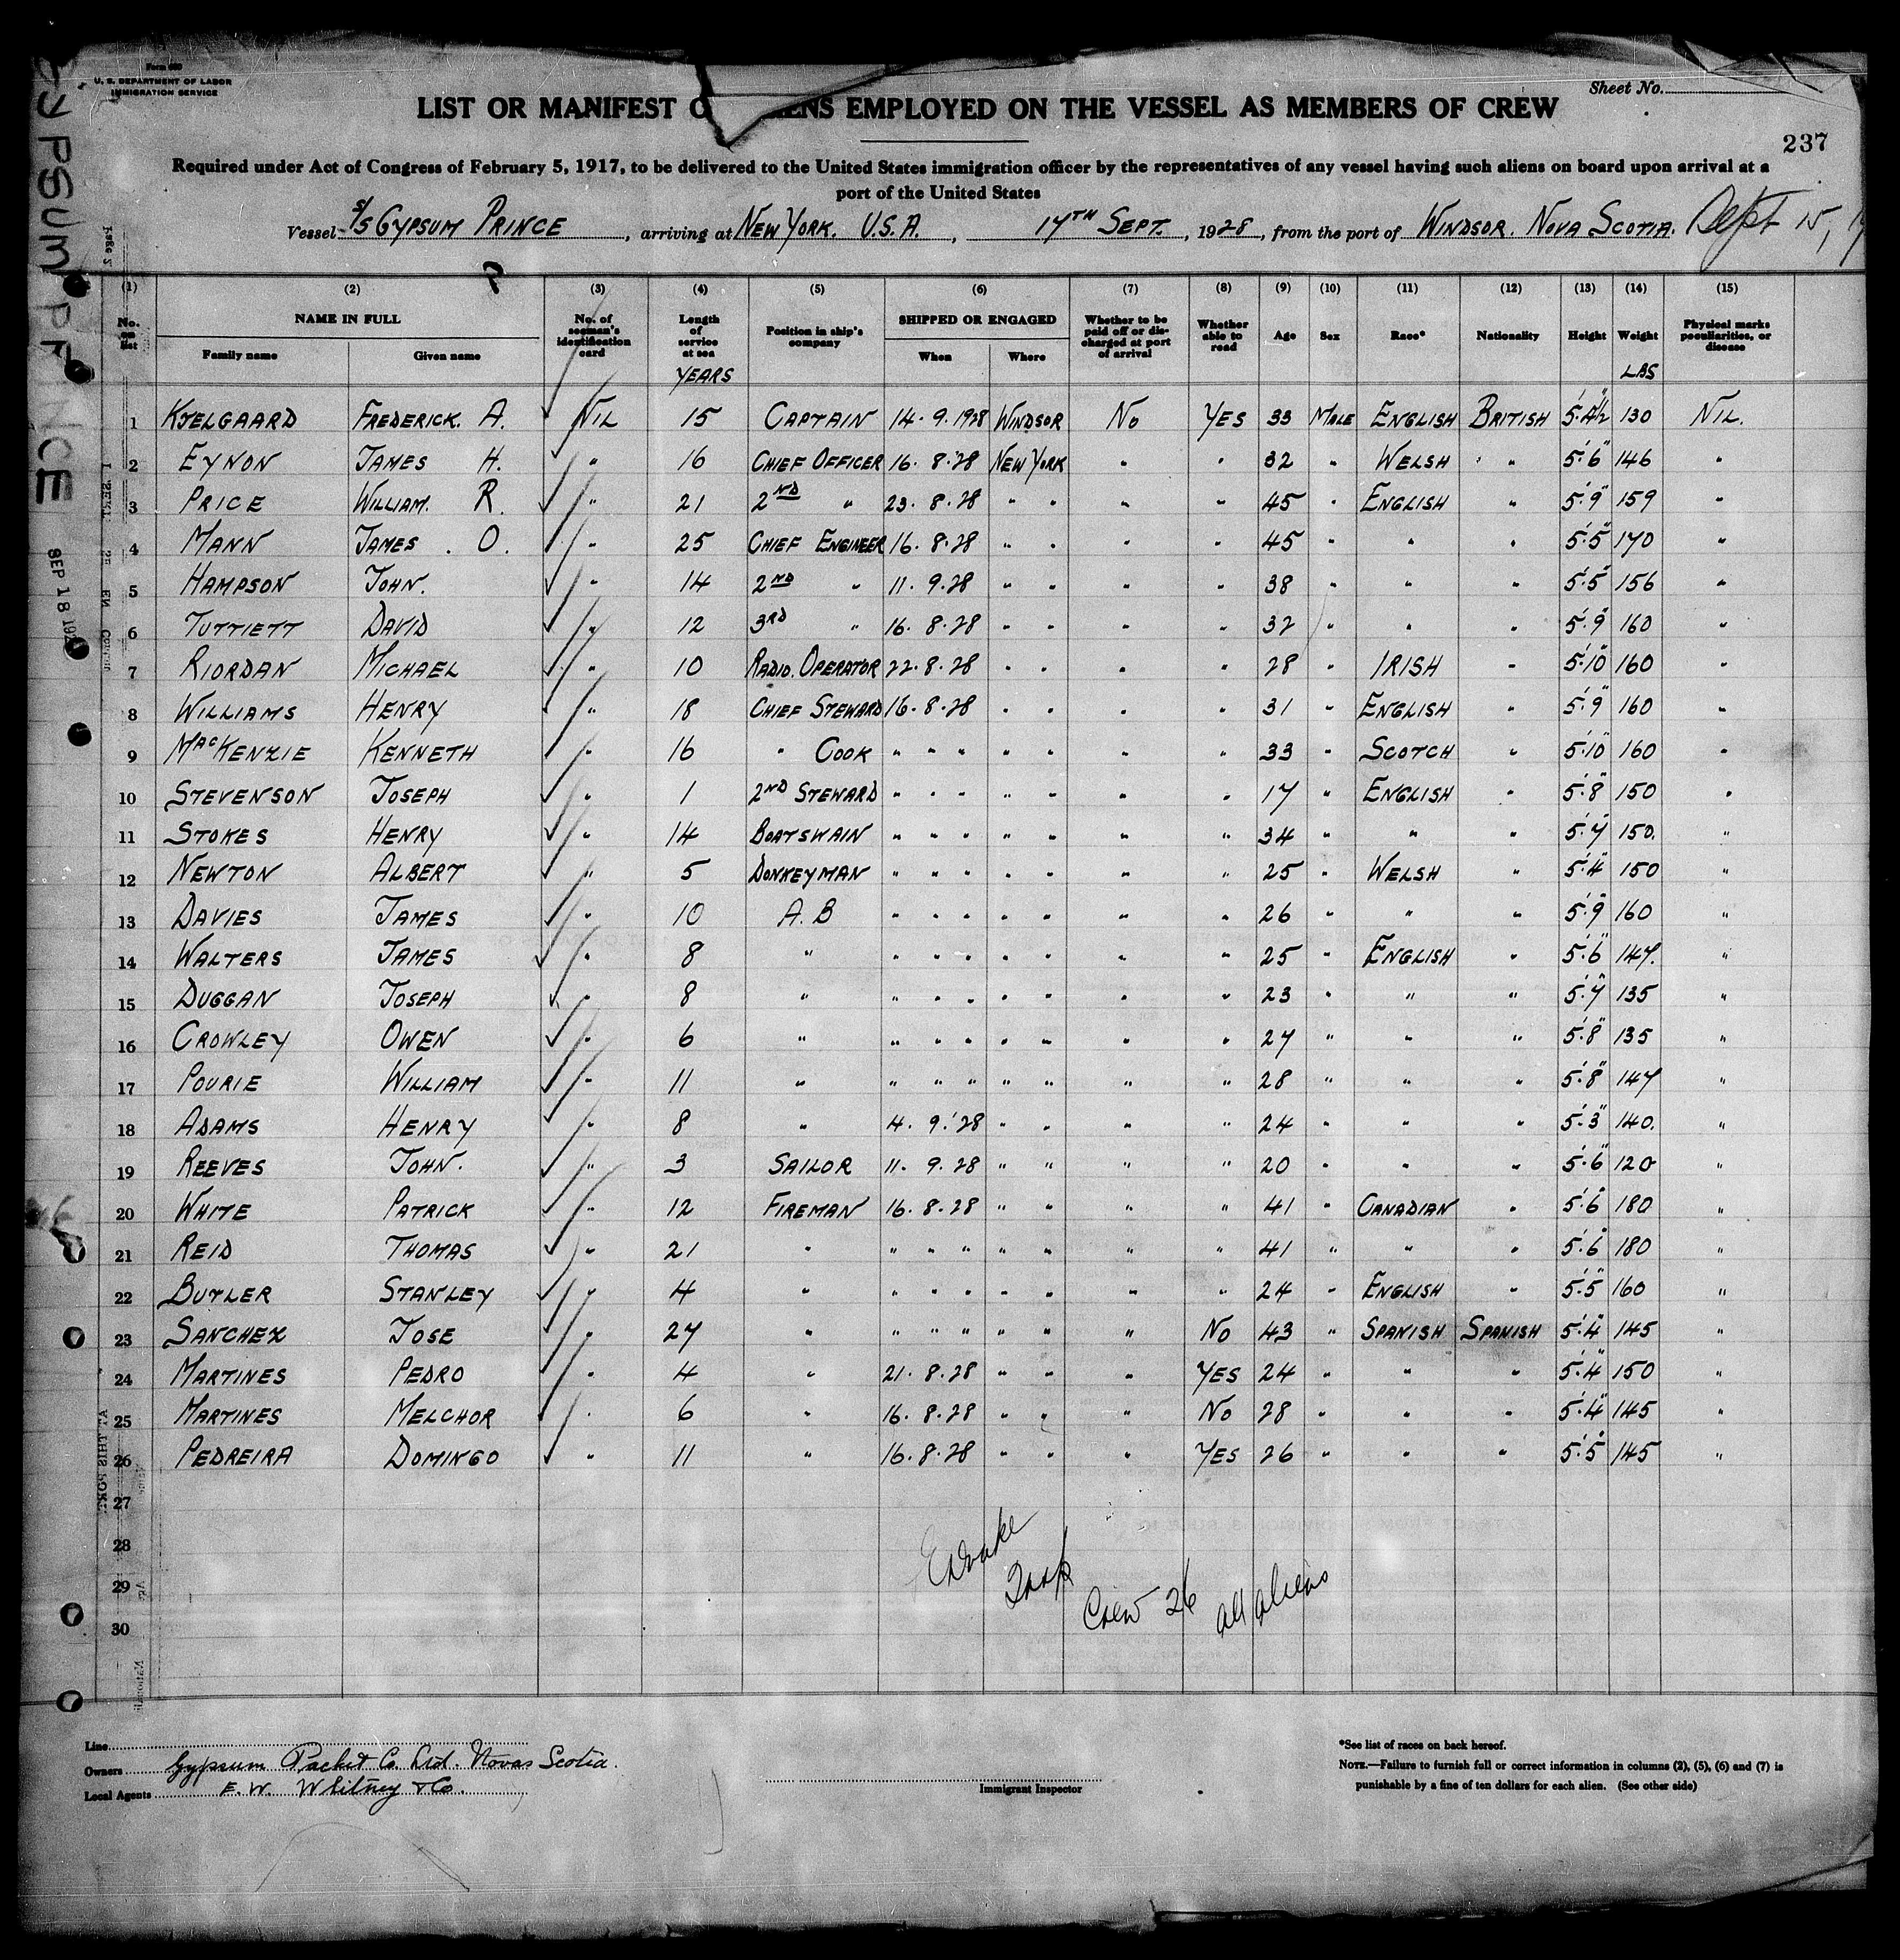 Form 680
U. S. DEPARTMENT OF LABOR
IMMIGRATION SERVICE
Sheet No.
LIST OR MANIFEST O IENS EMPLOYED ON THE VESSEL AS MEMBERS OF CREW
237
Required under Act of Congress of February 5, 1917, to be delivered to the United States immigration officer by the representatives of any vessel having such aliens on board upon arrival at a
port of the United States
Vessel S/S GYPSUM PRINCE, arriving at NEW YORK. U.S.A., 17TH SEPT., 1928, from the port of WINDSOR. NOVA SCOTIA. Sept 15,
GYPSUM PRINCE
SEP 18 192
(1) (2) (3) (4) (5) (6) (7) (8) (9) (10) (11) (12) (13) (14) (15)
No. on list NAME IN FULL Family name Given name No. of seaman's identification card Length of service at sea YEARS Position in ship's company SHIPPED OR ENGAGED When Where Whether to be paid off or discharged at port of arrival Whether able to read Age Sex Race* Nationality Height Weight LBS Physical marks peculiarities, or disease
1 KJELGAARD FREDERICK. A. NIL 15 CAPTAIN 14. 9. 1928 WINDSOR NO YES 33 MALE ENGLISH BRITISH 5'.4½" 130 NIL.
2 EYNON JAMES H. " 16 CHIEF OFFICER 16. 8.'28 NEW YORK " " 32 " WELSH " 5'.6" 146 "
3 PRICE WILLIAM. R. " 21 2ND " 23. 8.28 " " " " 45 " ENGLISH " 5'.9" 159 "
4 MANN JAMES. O. " 25 CHIEF ENGINEER 16. 8.28 " " " " 45 " " " 5'.5" 170 "
5 HAMPSON JOHN. " 14 2ND " 11. 9.28 " " " " 38 " " " 5'.5" 156 "
6 TUTTIETT DAVID " 12 3RD " 16. 8.28 " " " " 32 " " " 5'.9" 160 "
7 RIORDAN MICHAEL " 10 RADIO. OPERATOR 22. 8. 28 " " " " 28 " IRISH " 5'.10" 160 "
8 WILLIAMS HENRY " 18 CHIEF STEWARD 16. 8.28 " " " " 31 " ENGLISH " 5'.9" 160 "
9 MACKENZIE KENNETH " 16 " COOK " " " " " " " 33 " SCOTCH " 5'.10" 160 "
10 STEVENSON JOSEPH " 1 2ND STEWARD " " " " " " " 17 " ENGLISH " 5'.8" 150 "
11 STOKES HENRY " 14 BOATSWAIN " " " " " " " 34 " " " 5'.7" 150. "
12 NEWTON ALBERT " 5 DONKEYMAN " " " " " " " 25 " WELSH " 5'.4" 150 "
13 DAVIES JAMES " 10 A.B " " " " " " " 26 " " " 5'.9" 160 "
14 WALTERS JAMES " 8 " " " " " " " " 25 " ENGLISH " 5'.6" 147. "
15 DUGGAN JOSEPH " 8 " " " " " " " " 23 " " " 5'.7" 135 "
16 CROWLEY OWEN " 6 " " " " " " " " 27 " " " 5'.8" 135 "
17 POURIE WILLIAM " 11 " " " " " " " " 28 " " " 5'.8" 147 "
18 ADAMS HENRY " 8 " 4. 9.'28 " " " " 24 " " " 5'.3" 140. "
19 REEVES JOHN. " 3 SAILOR 11. 9. 28 " " " " 20 " " " 5'.6" 120 "
20 WHITE PATRICK " 12 FIREMAN 16. 8.28 " " " " 41 " CANADIAN " 5'.6" 180 "
21 REID THOMAS " 21 " " " " " " " " 41 " " " 5'.6" 180 "
22 BUTLER STANLEY " 4 " " " " " " " " 24 " ENGLISH " 5'.5" 160 "
23 SANCHEZ JOSE " 27 " " " " " " " NO 43 " SPANISH SPANISH 5'.4" 145 "
24 MARTINES PEDRO " 4 " 21. 8.28 " " " YES 24 " " " 5'.4" 150 "
25 MARTINES MELCHOR " 6 " 16. 8.28 " " " NO 28 " " " 5'.4" 145 "
26 PEDREIRA DOMINGO " 11 " 16. 8.28 " " " YES 26 " " " 5'.5" 145 "
27
28
29
30
Crew 26 all aliens
Line
Owners Gypsum Packet Co. Ltd. Nova Scotia.
Local Agents E. W. Whitney & Co.
Immigrant Inspector
*See list of races on back hereof.
NOTE.—Failure to furnish full or correct information in columns (2), (5), (6) and (7) is
punishable by a fine of ten dollars for each alien. (See other side)